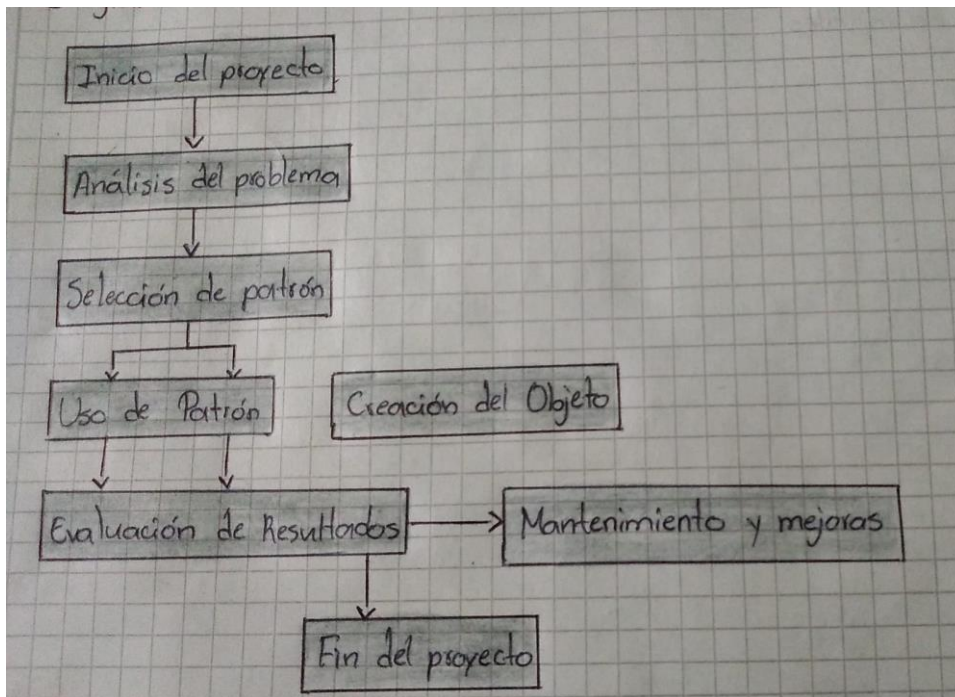 Inicio del proyecto
Análisis del problema
Selección de patrón
Uso de Patrón
Creación del Objeto
Evaluación de Resultados
Mantenimiento y mejoras
Fin del proyecto